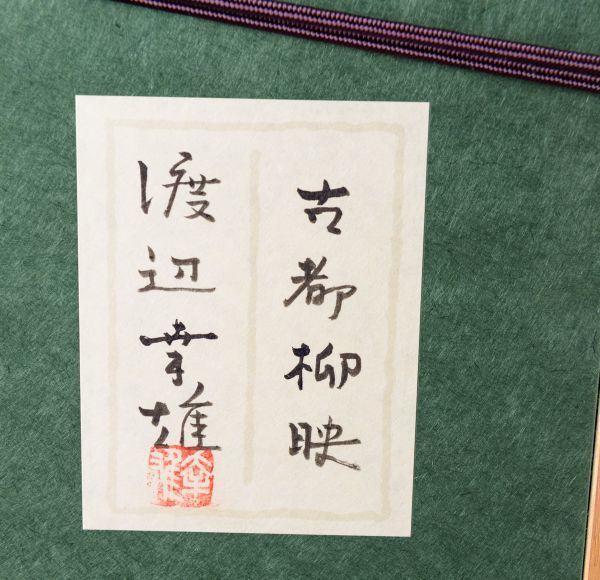 古都柳映
渡辺幸雄
幸雄